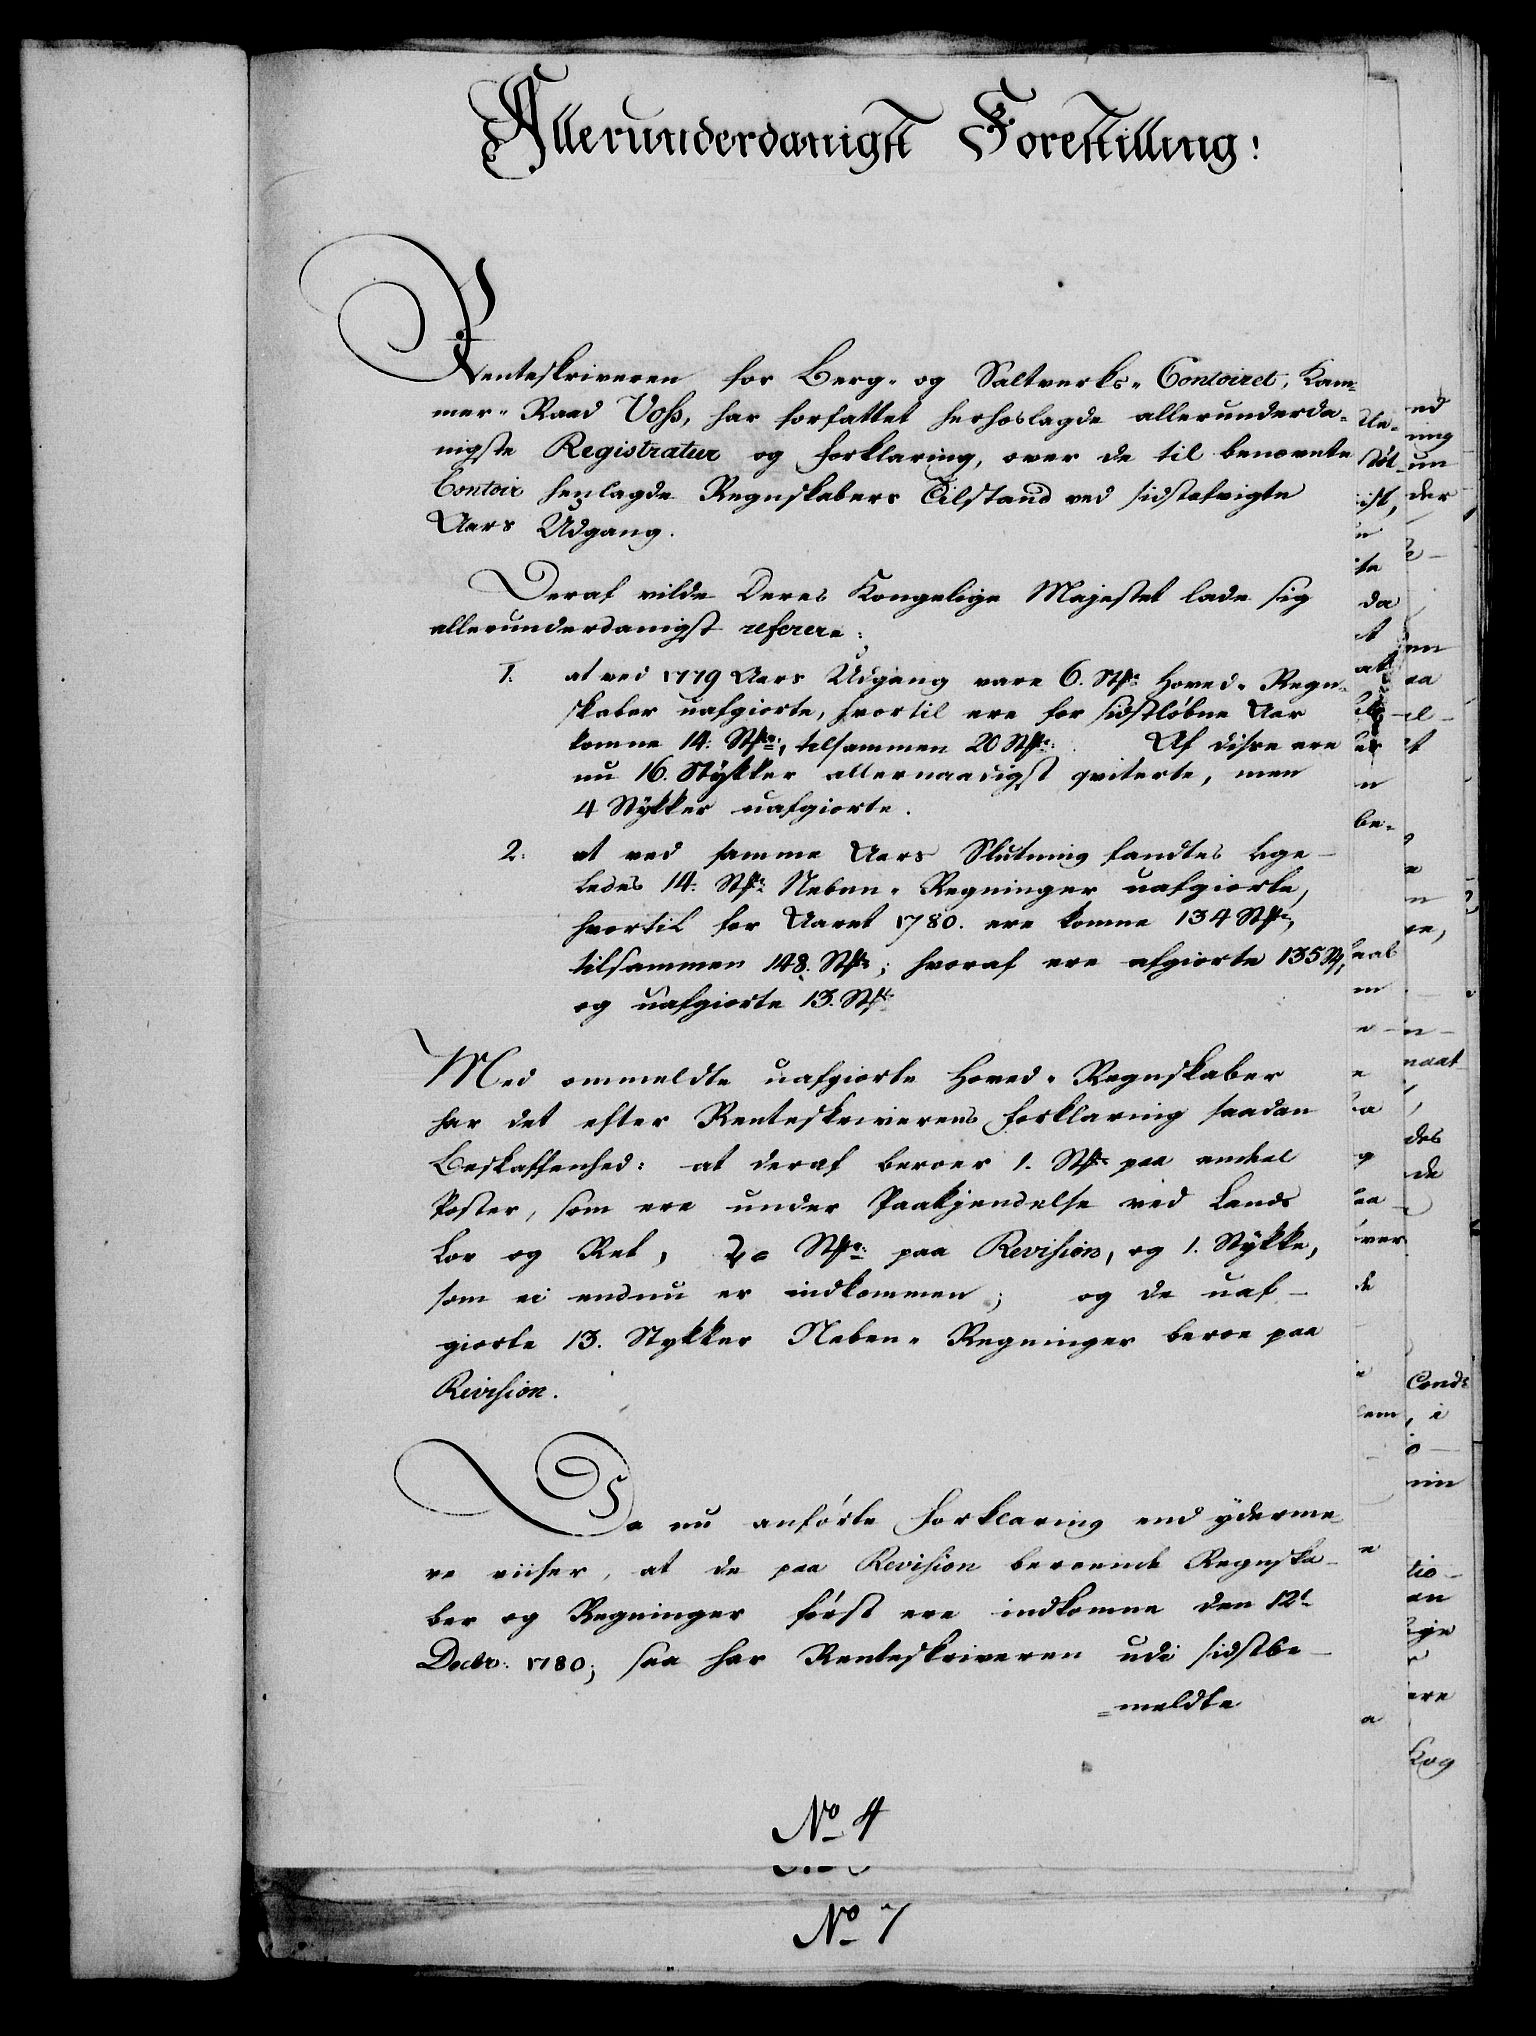 Allerunderdanigst Forestilling!
Renteskriveren for Berg- og Saltverks-Contoiret, Kam-
mer-Raad Voss, har forfattet herhoslagde allerunderda-
nigste Registratur og Forklaring, over de til benævnte
Contoir henlagde Regnskabers Tilstand ved sidstafvigte
Aars Udgang.
Deraf vilde Deres Kongelige Majestet lade sig
allerunderdanigst referere:
1. at ved 1779 Aars Udgang vare 6. Stkr: Hoved-Regn-
skaber uafgiorte, hvortil ere for sidstløbne Aar
komne 14: Stkr:, tilsammen 20 Stkr: Af disse ere
nu 16. Stÿkker allernaadigst qviterte, men
4 Stÿkker uafgiorte.
2: at ved samme Aars Slutning fandtes lige-
ledes 14: Stkr: Neben-Regninger uafgiorte,
hvortil for Aaret 1780. ere komne 134 Stkr:,
tilsammen 148. Stkr:; hvoraf ere afgiorte 135 Stk,
og uafgiorte 13. Stkr:
Med ommeldte uafgiorte Hoved-Regnskaber
har det efter Renteskriverens Forklaring saadan
Beskaffenhed: at deraf beroer 1. Stk: paa endeel
Poster, som ere under Paakjendelse ved Lands
Lov og Ret, 2 Stkr: paa Revision, og 1. Stÿkke,
som ei endnu er indkommen; og de uaf-
giorte 13. Stykker Neben-Regninger beroe paa
Revision.
Da nu anførte Forklaring end ÿderme-
re viiser, at de paa Revision beroende Regnska-
ber og Regninger først ere indkomne den 12te
Decbr: 1780; saa har Renteskriveren udi sidstbe-
=meldte
No 4
No 7